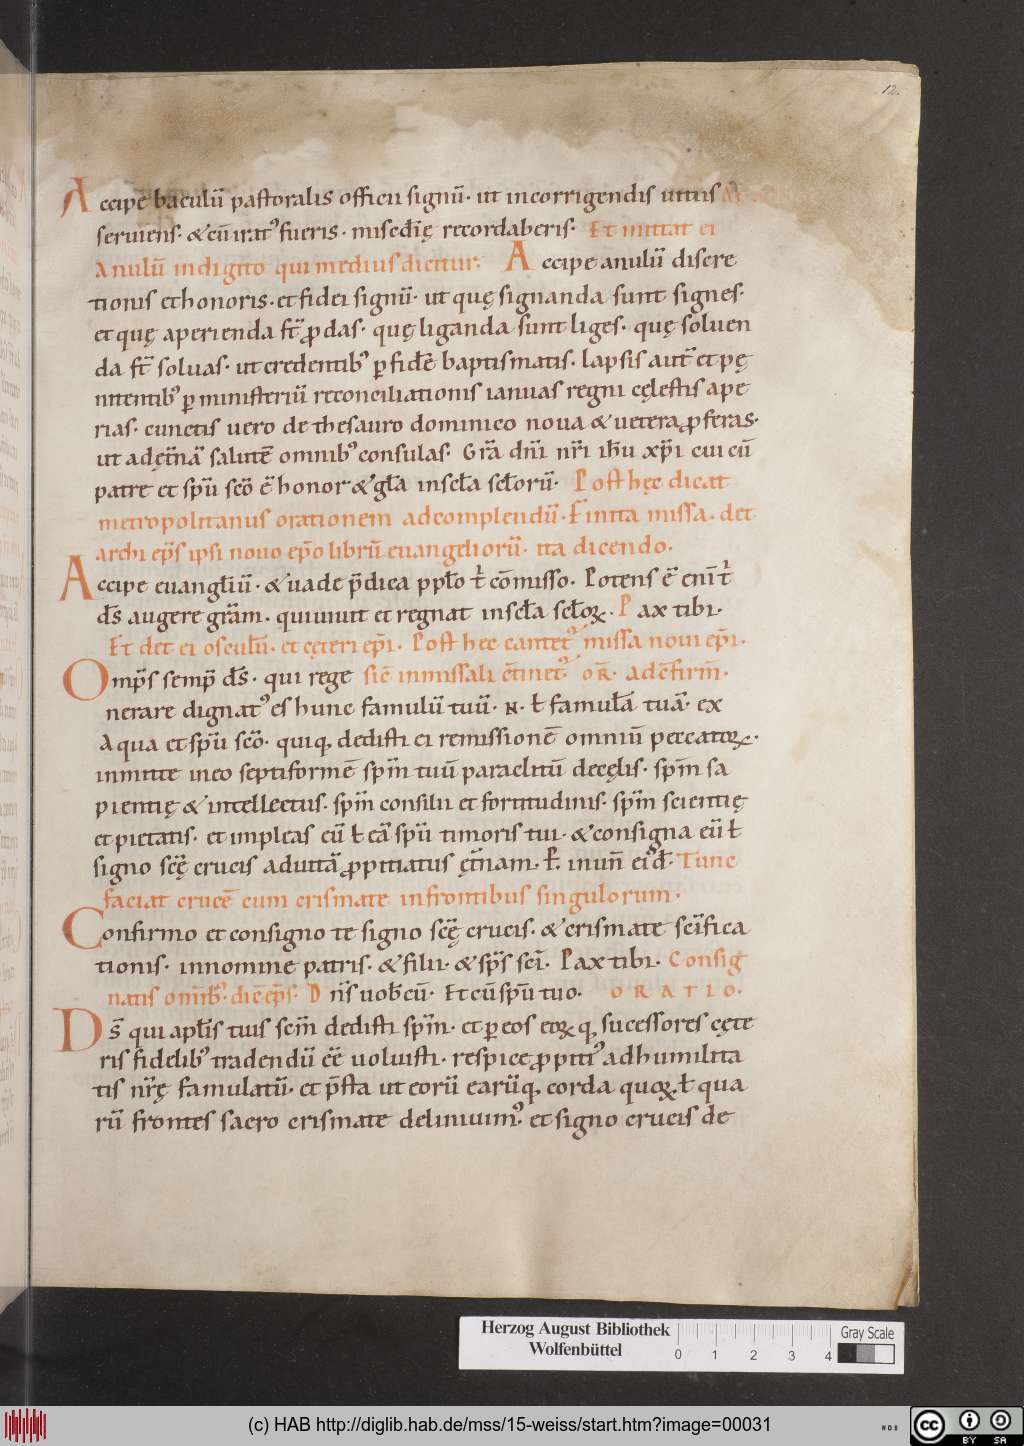 12.
Accipe baculū pastoralis officii signū· ut incorrigendis uitiis
seruiens· & cū irat᾽ fueris· misedīę recordaberis· Et mittat ei
Anulū indigito qui medius dicitur· Accipe anulū discre
tionis et honoris· et fidei signū· ut quę signanda sunt signes·
et quę aperienda st̄ ꝓdas· quę liganda sunt liges· quę soluen
da st̄ soluas· ut credentib᾽ ꝑ fidē baptismatis· lapsis aut̄ et pę
nitentib᾽ ꝑ ministeriū reconciliationis ianuas regni cęlestis ape
rias· cunctis uero de thesauro dominico noua & uetera ꝓferas·
ut adęt̄nā salutē omnib᾽ consulas· Gr̄a dn̄i nr̄i ih̄u xp̄i cui cū
patre et sp̄u scō ē honor & gl̄a inscl̄a scl̄orū· Post hęc dicat
metropolitanus orationem adcomplendū· Finita missa· det
archi ep̄s ipsi nouo ep̄o librū euangeliorū· ita dicendo·
Accipe euangl̄iū· & uade p̄dica ppl̄o t᾽ cōmisso· Potens ē enī t᾽
ds̄ augere gr̄am· qui uiuit et regnat inscl̄a scl̄oꝝ· Pax tibi·
Et det ei osculū· et cęteri ep̄i· Post hec cantet᾽ missa noui ep̄i·
Omp̄s semp̄ ds̄· qui rege siē inmissali ētinet᾽· oR̄· adēfirm̄·
nerare dignat᾽ es hunc famulū tuū· N· ł famulā tuā· ex
Aqua et sp̄u scō· quiq, dedisti ei remissionē omniū peccatoꝝ·
inmitte ineo septiformē sp̄m tuū paraclitū decęlis· sp̄m sa
pientię & intellectus· sp̄m consilii et fortitudinis· sp̄m scientię
et pietatis· et impleas eū ł eā sp̄u timoris tui· & consigna eū ł
signo scę̄ crucis aduitā ꝓpitiatus ęt̄nam· P̄· inun̄ eīd̄· Tunc
faciat crucē cum crismate infrontibus singulorum·
Confirmo et consigno te signo scę̄ crucis· & crismate sc̄ifica
tionis· innomine patris· & filii· & sp̄s sc̄i· Pax tibi· Consig
natis om̄ib᾽· dic̄ ep̄s· Dn̄s uob̄cū· Et cū sp̄u tuo· ORATIO·
Ds̄ qui apl̄is tuis sc̄m dedisti sp̄m· et ꝑ eos eoꝝ q, sucessores cęte
ris fidelib᾽ tradendū eē̄ uoluisti· respice ꝓpiti᾽ adhumilita
tis nr̄ę famulatū· et p̄sta ut eorū earūq, corda quoꝝ ł qua
rū frontes sacro crismate deliniuim᾽· et signo crucis de
Herzog August Bibliothek
Wolfenbüttel
0 1 2 3 4
Gray Scale
(c) HAB http://diglib.hab.de/mss/15-weiss/start.htm?image=00031
WDB
cc BY SA